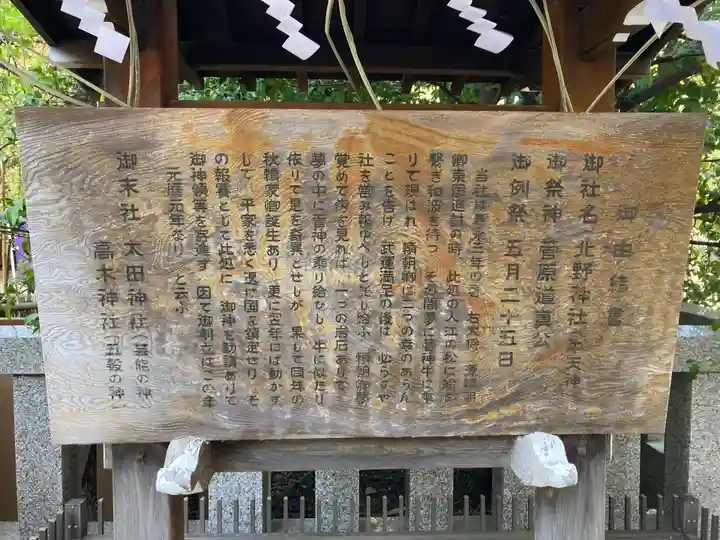 御由緒書
御社名 北野神社 天神
御祭神 菅原道真公
御例祭 五月二十五日
当社は 年の春 右大将 源頼朝
卿東国追討の時、此処の入江の松に船を
繋ぎ和波を待つ。その間夢に菅神牛に乗
りて現はれ、頼朝卿に二つの幸のあらん
ことを告げ、武運満足の後は、必らずや
社を営み報ゆべしと宣り給ふ。頼朝卿夢
覚めて傍を見れば、一つの岩石ありて
夢の中に菅神の乗り給ひし、牛に似たり
依りて是を奇異とせしが、果して同年の
秋頼家卿誕生あり、更に翌年には動かず
して、平家を悉く 国を鎮定せり。そ
の報賽として此処に、御神を勧請ありて
御神領等を寄進す。因て御創立はこの年
元暦元年なり と云ふ
御末社 太田神社(芸能の神
高木神社(五穀の神